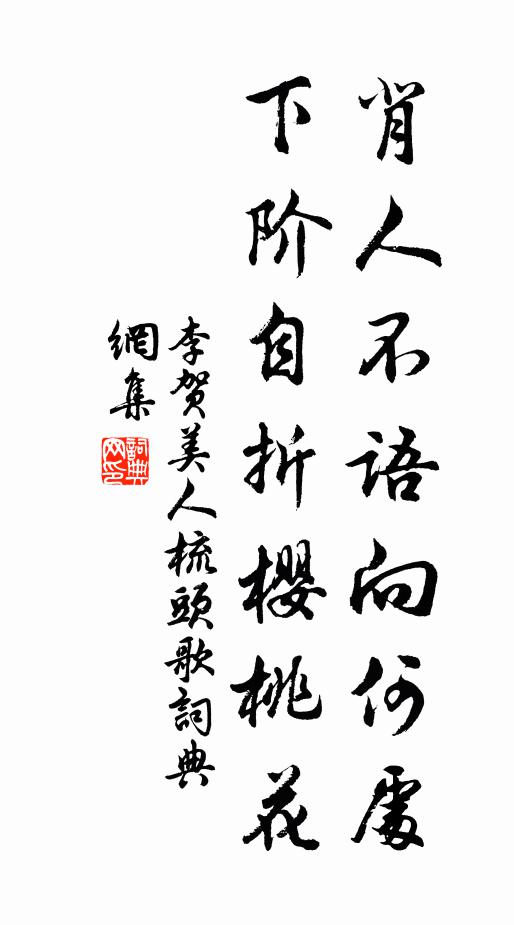 背人不語向何處
下阶自折櫻桃花
李贺美人梳頭歌詞典
網集
詞典
网印